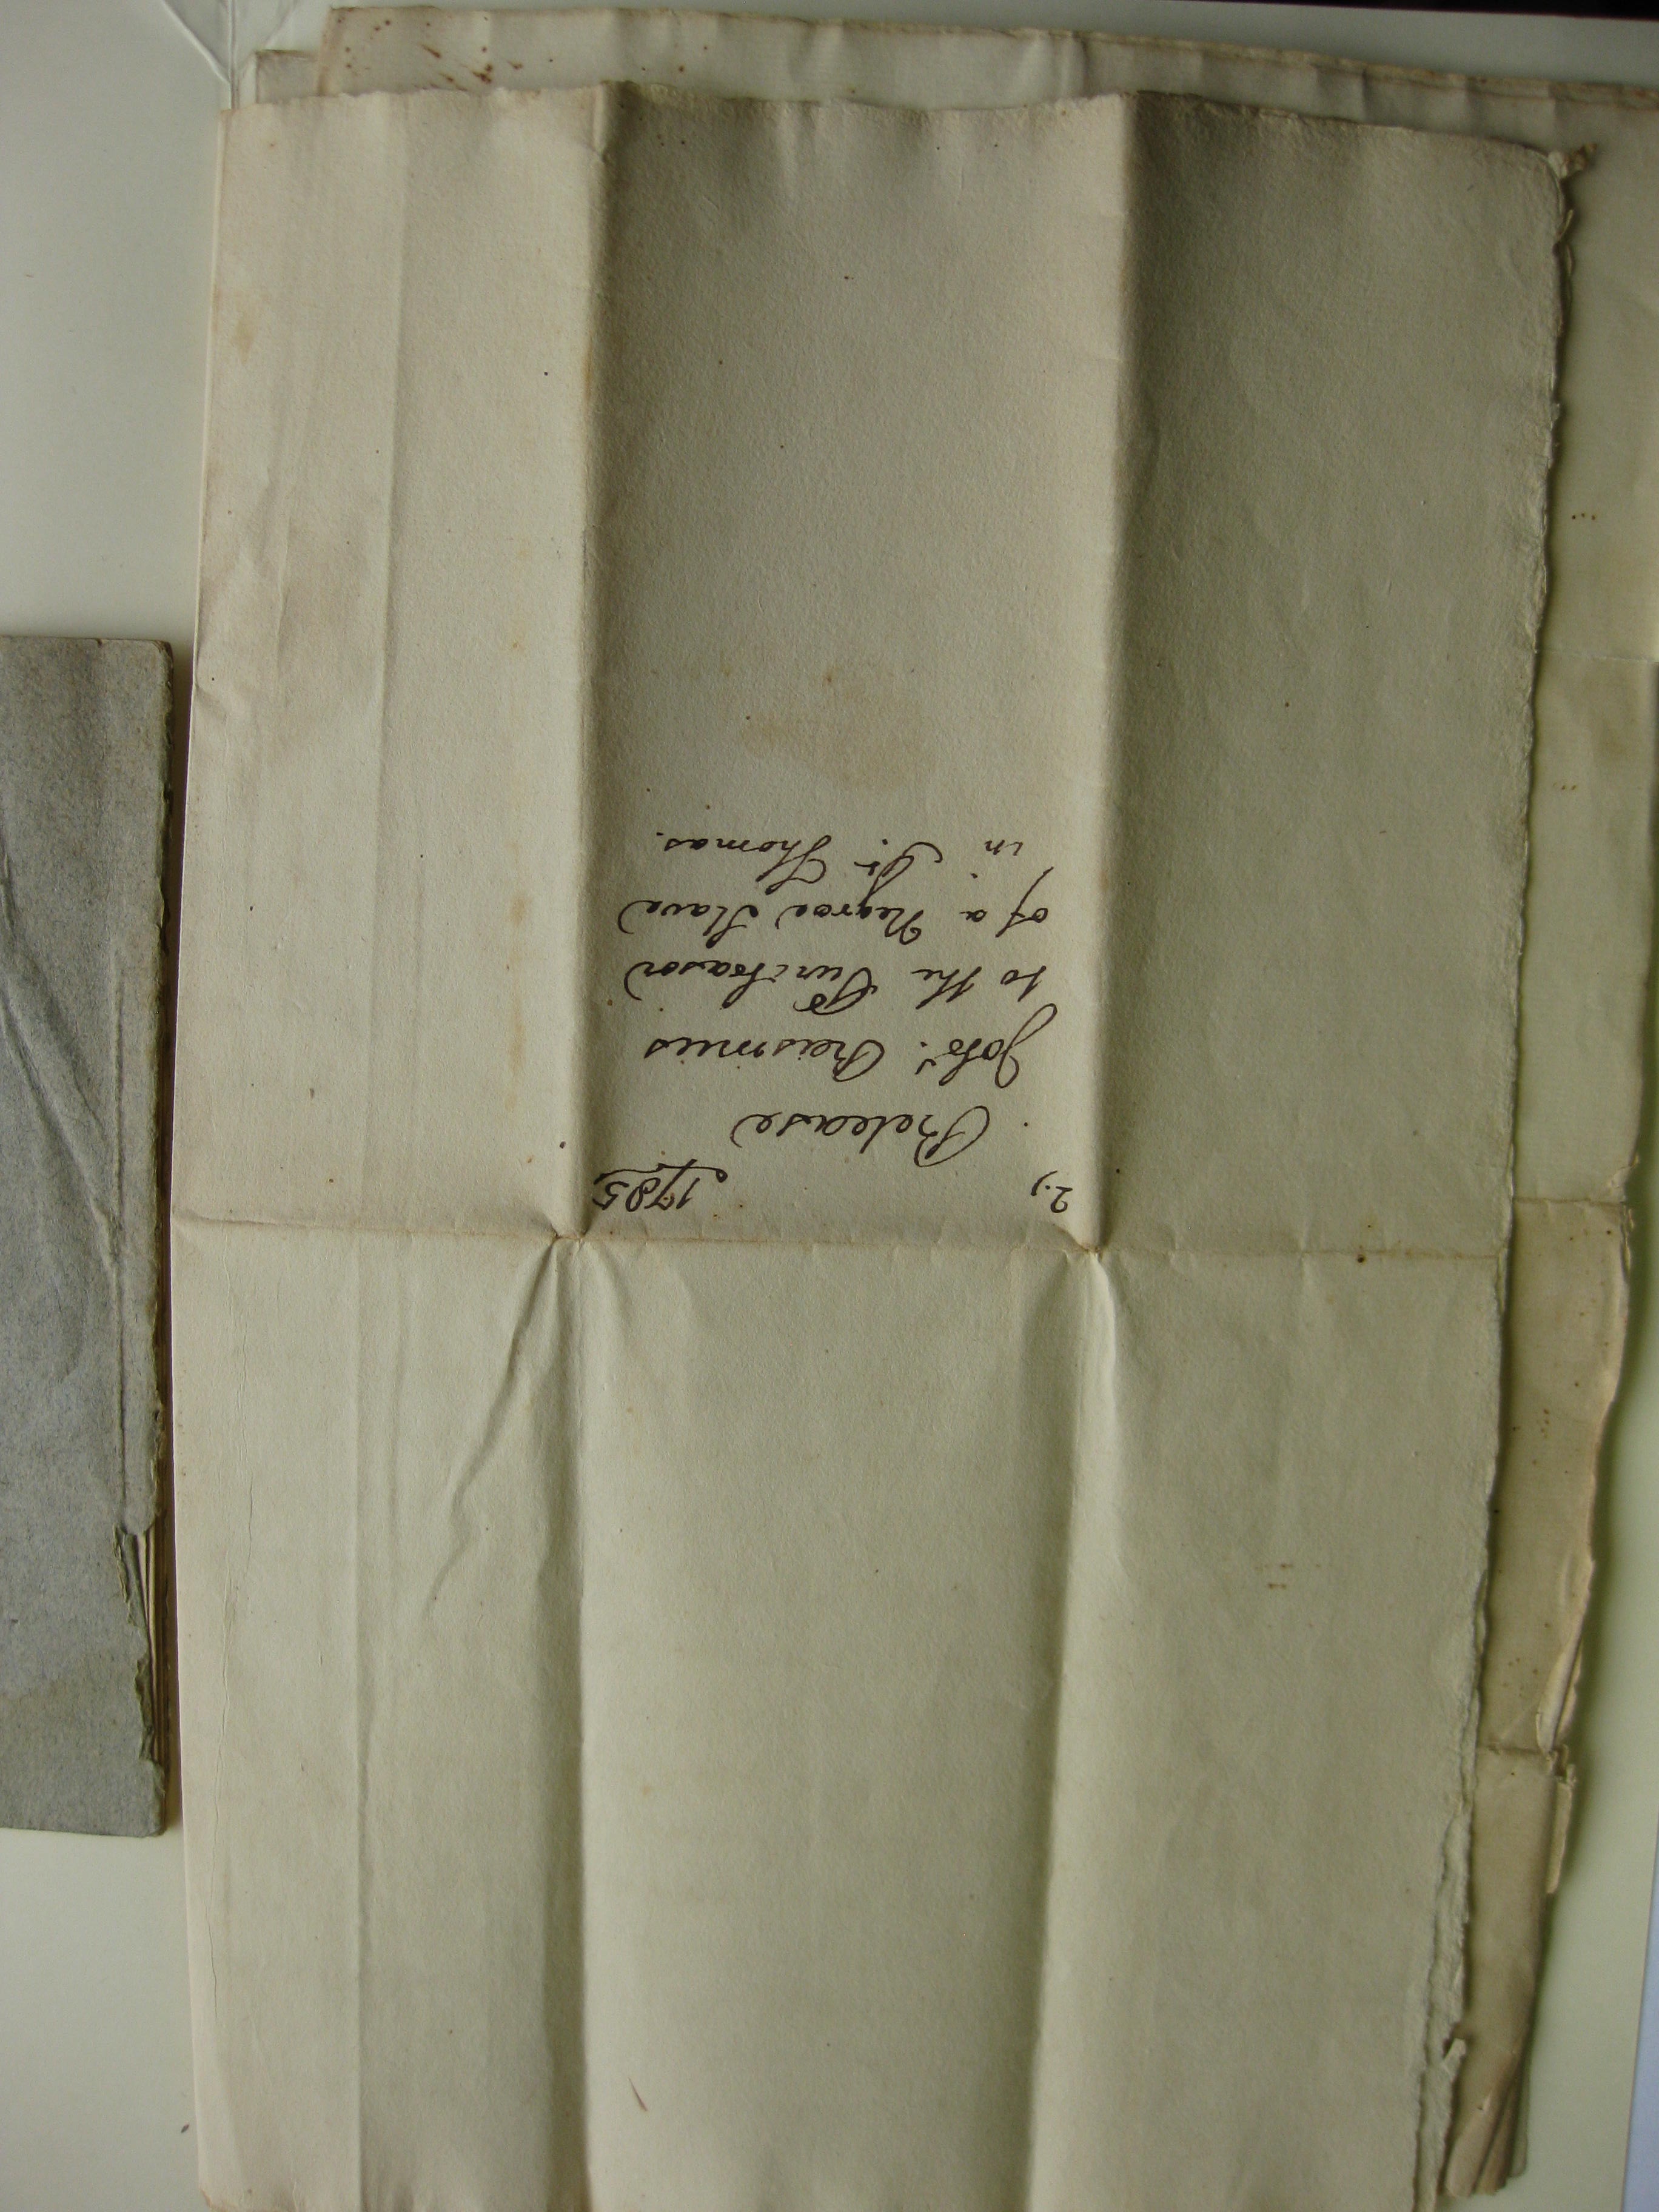 2.) 1785
Release
Joh:
to the Purchasor
of a Negroe Slave
in St. Thomas.